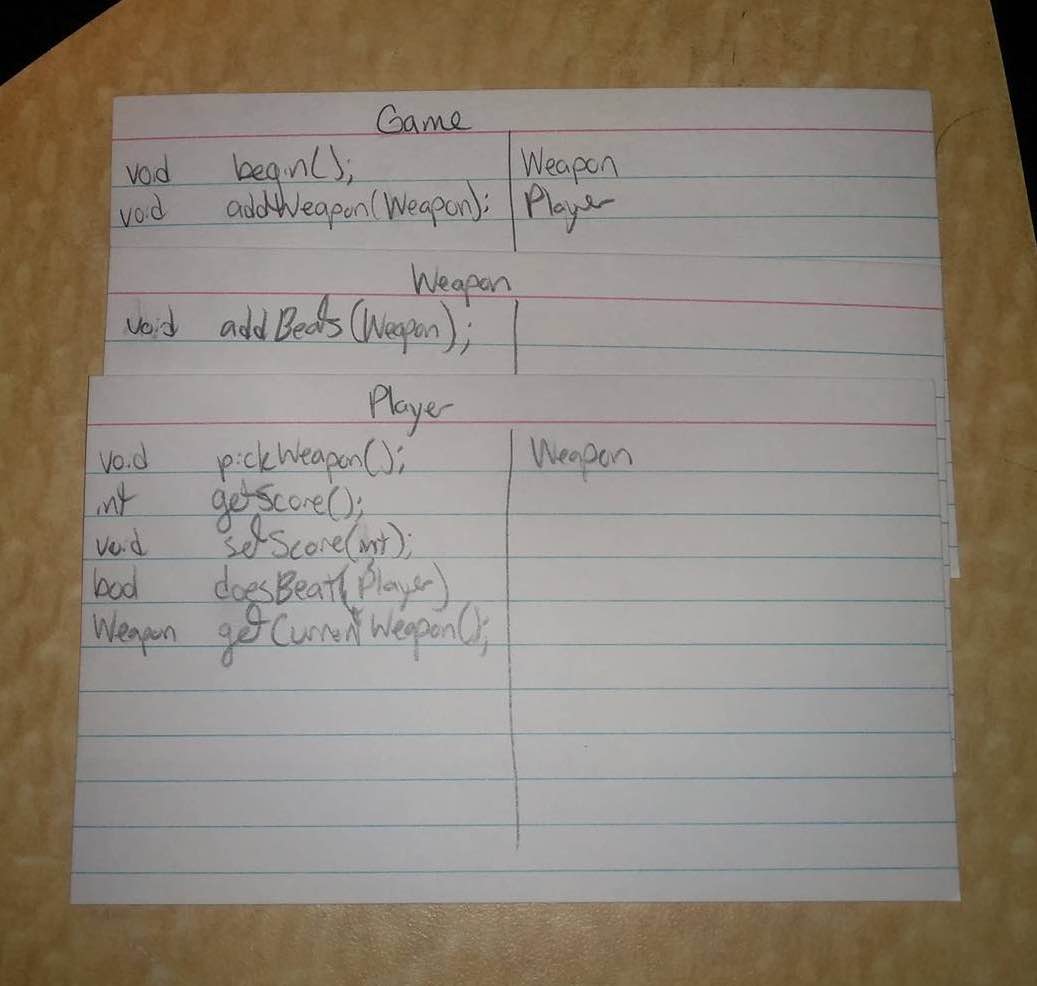 Game
void begin(); Weapon
void addWeapon(Weapon); Player
Weapon
void addBeats(Weapon);
Player
void pickWeapon(); Weapon
int getScore();
void setScore(int);
bool doesBeat(Player)
Weapon getCurrentWeapon();